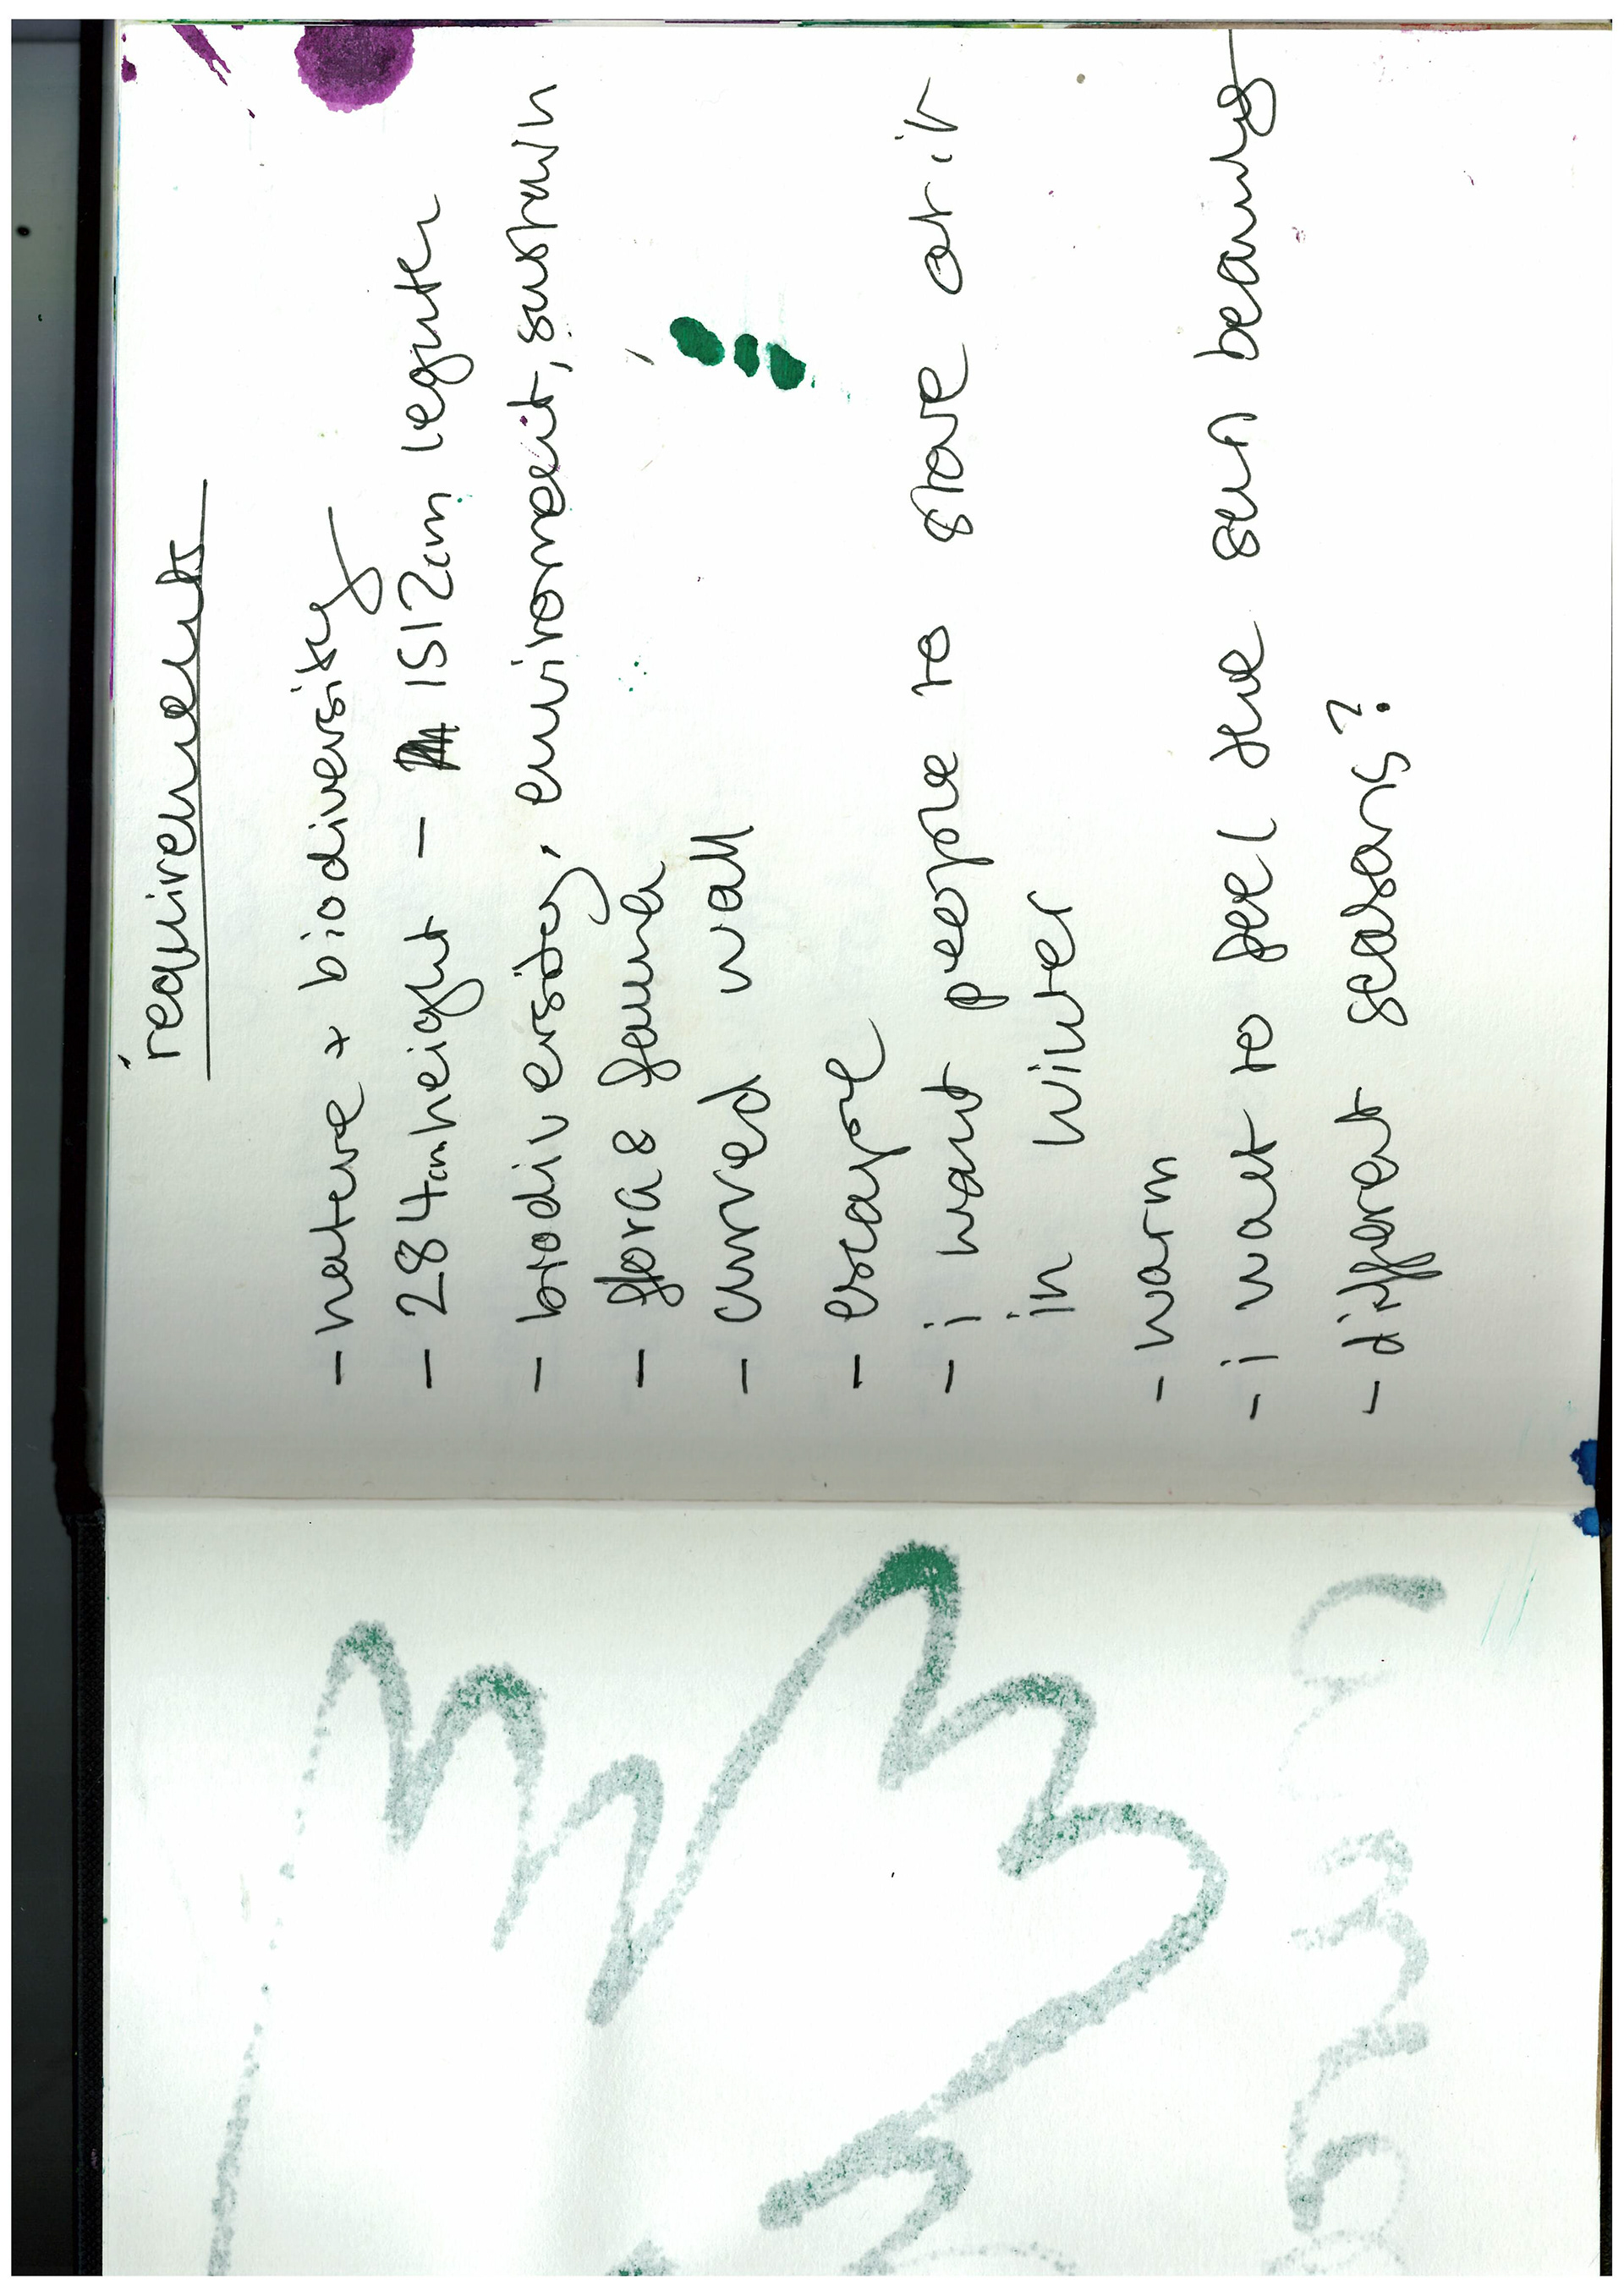 requirements
- nature + biodiversity
- 284cm height - 1512cm leguter
- biodiversity, enviroment, sustain
- flora & fauna
- curved wall
- escape
- i want people to stare at it
in winter
- warm
- i wat to feel the sun beaming
- different seasons?